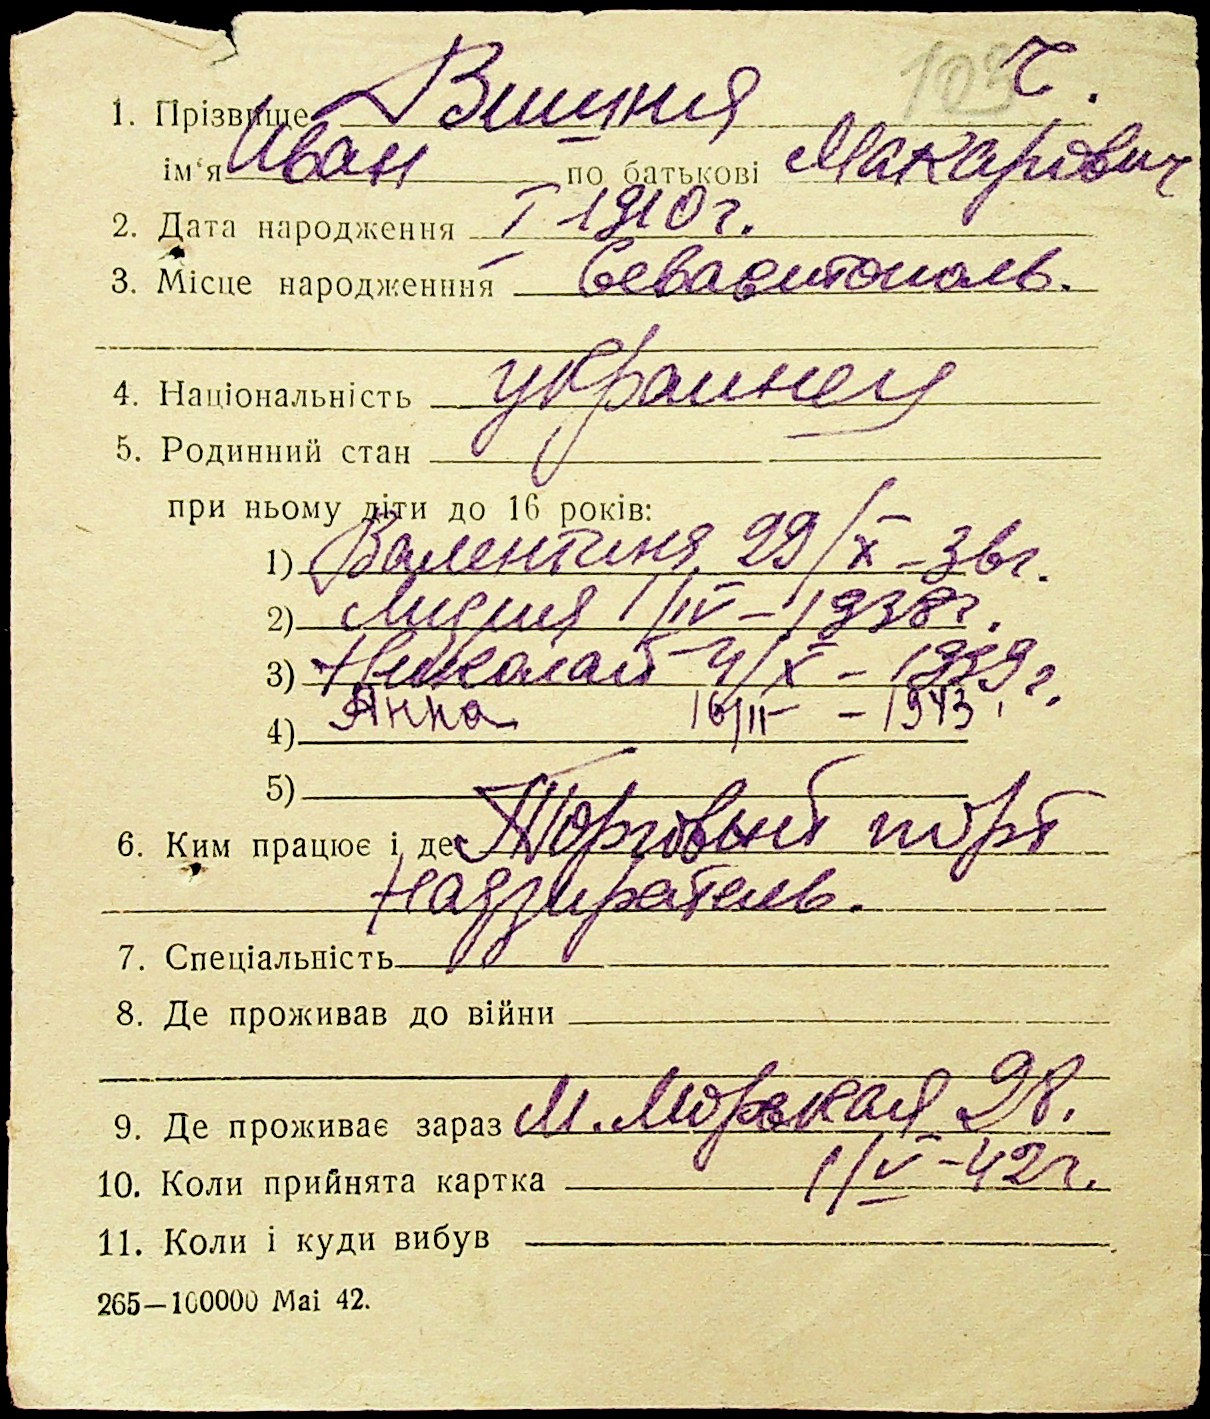 103 Ч.
1. Прізвище Вишня
ім'я Иван по батькові Макарович
2. Дата народження I 1910 г.
3. Місце народженння Севастополь.
4. Національність украинец
5. Родинний стан
при ньому діти до 16 років:
1) Валентина 29/X - 36 г.
2) Лидия 1/IV - 1938 г.
3) Николай 4/X - 1939 г.
4) Анна 16/II - 1943
5)
6. Ким працює і де Торговый порт
надзиратель.
7. Спеціальність
8. Де проживав до війни
9. Де проживає зараз М. Морская 28.
10. Коли прийнята картка 1/V - 42 г.
11. Коли і куди вибув
265—100000 Mai 42.